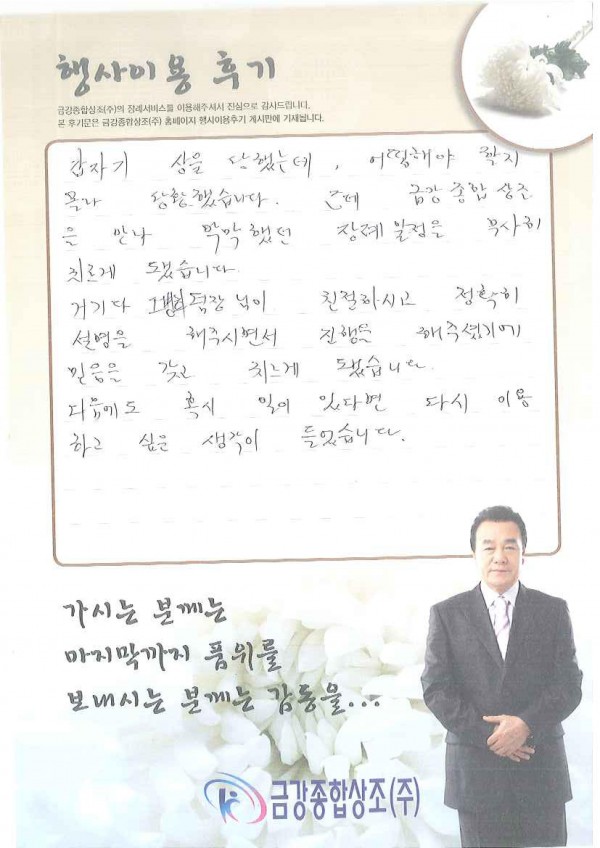 행사이용 후기
금강종합상조(주)의 장례서비스를 이용해주셔서 진심으로 감사드립니다.
본 후기문은 금강종합상조(주) 홈페이지 행사이용후기 게시판에 기재됩니다.
갑자기 상을 당했는데, 어떻해야 할지
몰라 당황했습니다. 근데 금강 종합 상조
을 만나 막막했던 장례 일정을 무사히
치르게 됐습니다
거기다 팀장님이 친절하시고 정확히
설명을 해주시면서 진행을 해주셨기에
믿음을 갖고 치느게 됐습니다.
다음에도 혹시 일이 있다면 다시 이용
하고 싶은 생각이 들었습니다.
가시는 분께는
마지막까지 품위를
보내시는 분께는 감동을...
금강종합상조(주)